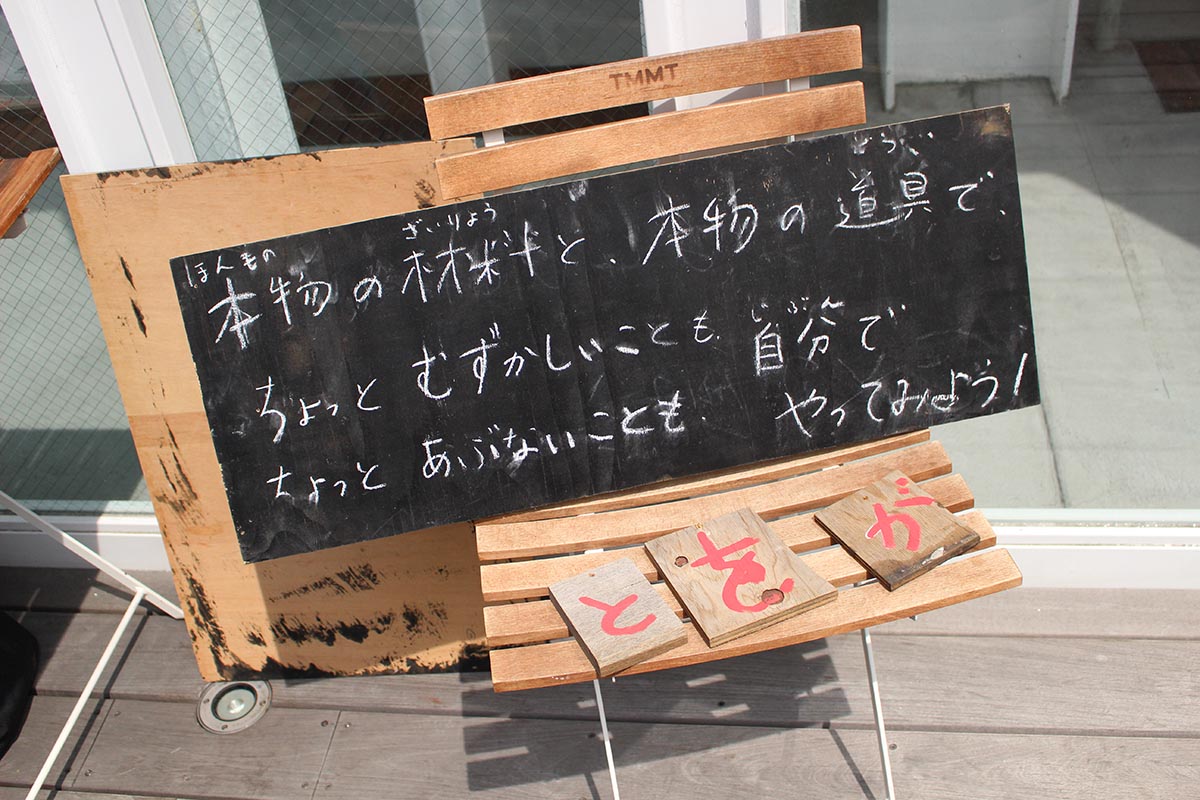 TMMT
ほんもの ざいりょう どうぐ
本物の材料と、本物の道具で、
じぶん
ちょっと むずかしいことも、自分で
ちょっと あぶないことも、やってみよう!
と
が